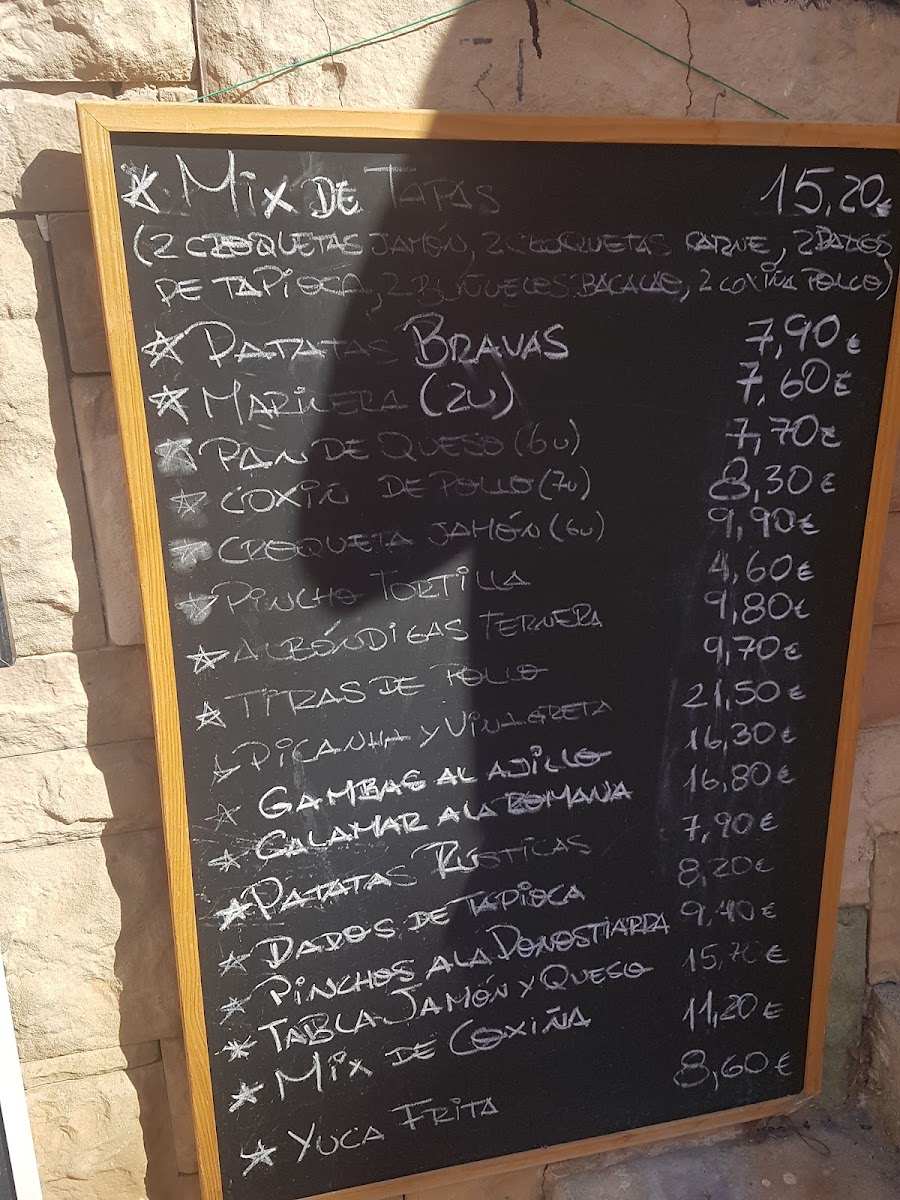 Mix DE TAPAS 15,20€
(2 CROQUETAS JAMÓN, 2 CROQUETAS CARNE, 2 DADOS
DE TAPIOCA, 2 BUÑUELOS BACALAO, 2 COXIÑA POLLO)
PATATAS BRAVAS 7,90€
MARINERA (2U) 7,60€
PAN DE QUESO (6U) 7,70€
COXIÑ DE POLLO (7U) 8,30€
CROQUETA JAMÓN (6U) 9,90€
PINCHO TORTILLA 4,60€
ALBÓNDIGAS TERNERA 9,80€
TIRAS DE POLLO 9,70€
PICANHA Y VINAGRETA 21,50€
GAMBAS AL AJILLO 16,30€
CALAMAR A LA ROMANA 16,80€
PATATAS RÚSTICAS 7,90€
DADOS DE TAPIOCA 8,20€
PINCHOS A LA DONOSTIARRA 9,40€
TABLA JAMÓN Y QUESO 15,70€
Mix DE COXIÑA 11,20€
YUCA FRITA 8,60€